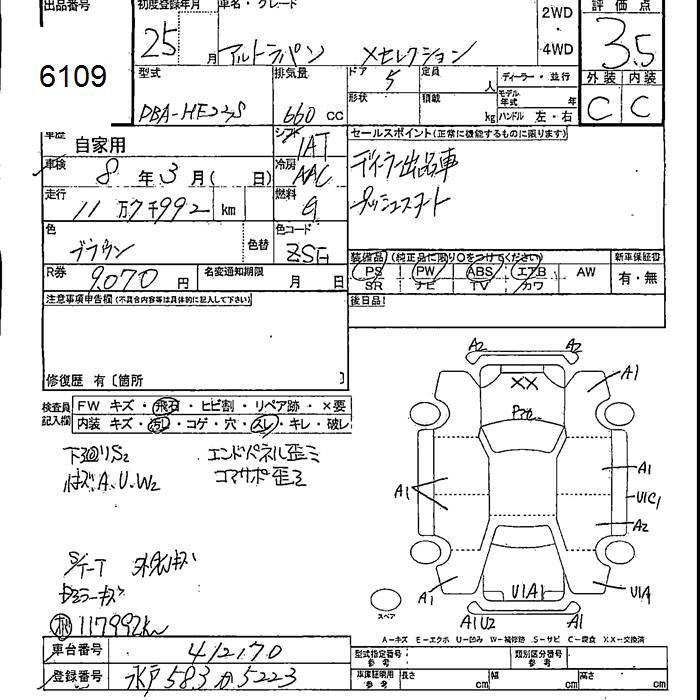 出品番号 初度登録年月 車名・グレード 2WD・4WD 評価点
6109
25 月 アルトラパン Xセレクション 3.5
型式 排気量 ドア 5 定員 人 ディーラー・並行 外装 内装
DBA-HE22S 660 cc 形状 積載 kg モデル年式 年 ハンドル 左・右 C C
車歴 自家用 シフト IAT セールスポイント(正常に機能するものに限ります)
車検 8 年 3 月 ( 日) 冷房 AAC ディーラー出品車
走行 11 万 7 千 992 km 燃料 G プッシュスタート
色 ブラウン 色替 色コード
装備品 (純正品に限り○をつけてください) 新車保証書
PS PW ABS エアB AW 有・無
SR ナビ TV カワ
R券 9,070 円 名変通知期限 月 日
後日品
注意事項申告欄 (不具合内容等は具体的に記入して下さい)
修復歴 有 [箇所 ]
検査員記入欄 FW キズ・飛石・ヒビ割・リペア跡・×要
内装 キズ・汚レ・コゲ・穴・スレ・キレ・破レ
エンドパネル歪ミ
コアサポ歪ミ
A.U.W2
S/T-T
117992km
A2 A2
A1
XX
A1 A1
U1C1
A2
A1 U1A1 U1A
A1U2 A1
スペア
A-キズ E-エクボ U-凹み W-補修跡 S-サビ C-腐食 XX-交換済
車台番号 412170
登録番号 水戸 583 か 5223
型式指定番号 参考 類別区分番号 参考
車庫証明用 参考 長さ cm 幅 cm 高さ cm